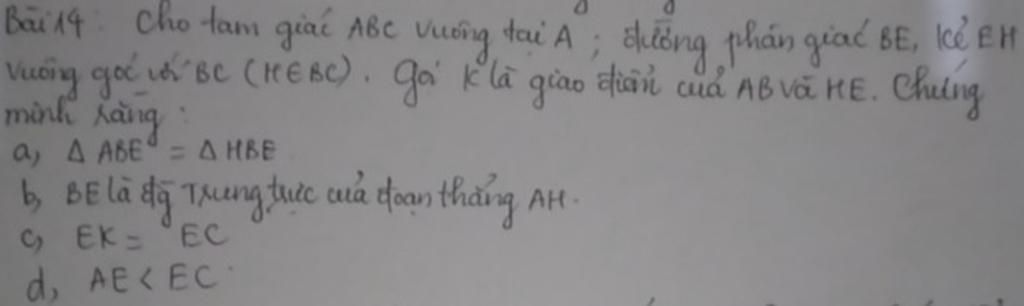 Bài 14: Cho tam giác ABC vuông tại A; đường phân giác BE, kẻ EH
vuông góc với BC (H∈BC). Gọi K là giao điểm của AB và HE. Chứng
minh rằng:
a, Δ ABE = Δ HBE
b, BE là đg Trung trực của đoạn thẳng AH.
c, EK = EC
d, AE < EC